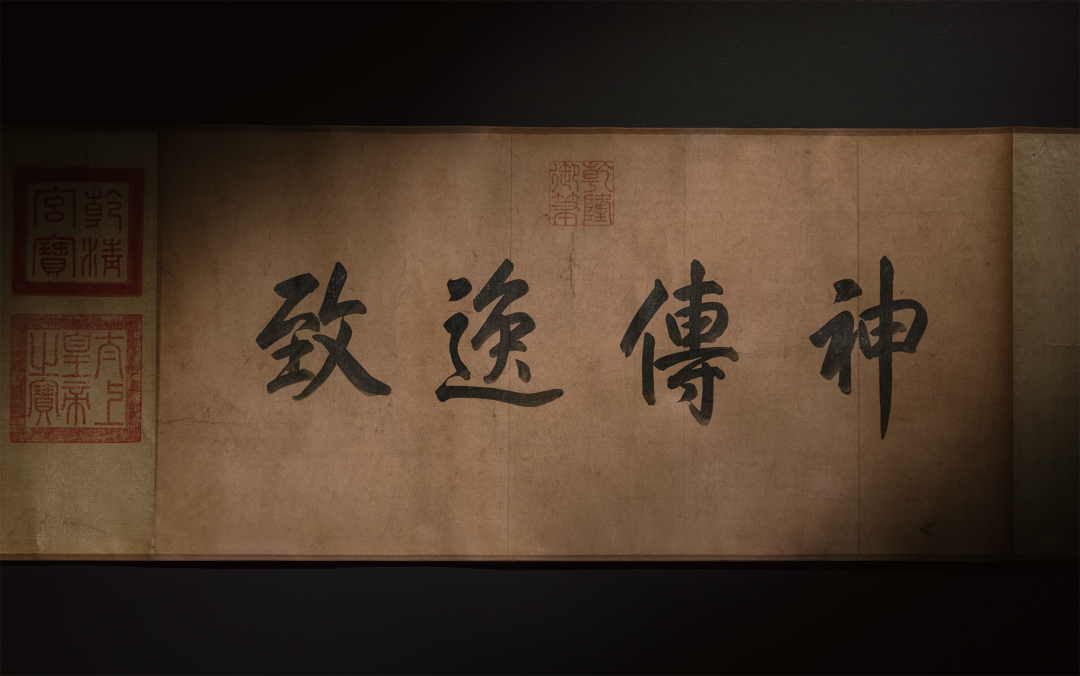 神傳逸致
乾隆
御筆
乾清
宮寶
太上
皇帝
之寶